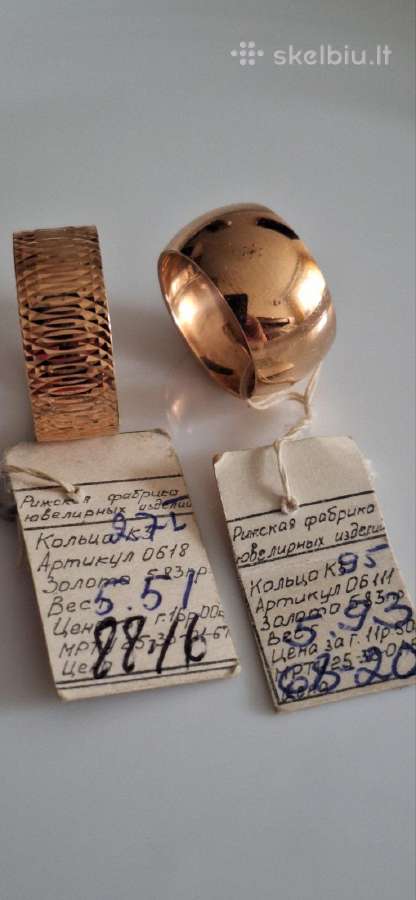 skelbiu.lt
Рижская фабрика
ювелирных изделий
Кольцо К3
Артикул 0618
Золото 583пр.
Вес 5.51
Цена г. 11р.00
МРТУ 25
Цена 88/16
Рижская фабрика
ювелирных изделий
Кольцо К3 95
Артикул 06111
Золото 583пр.
Вес 5.93
Цена за г. 11р.50
МРТУ 25
68-20